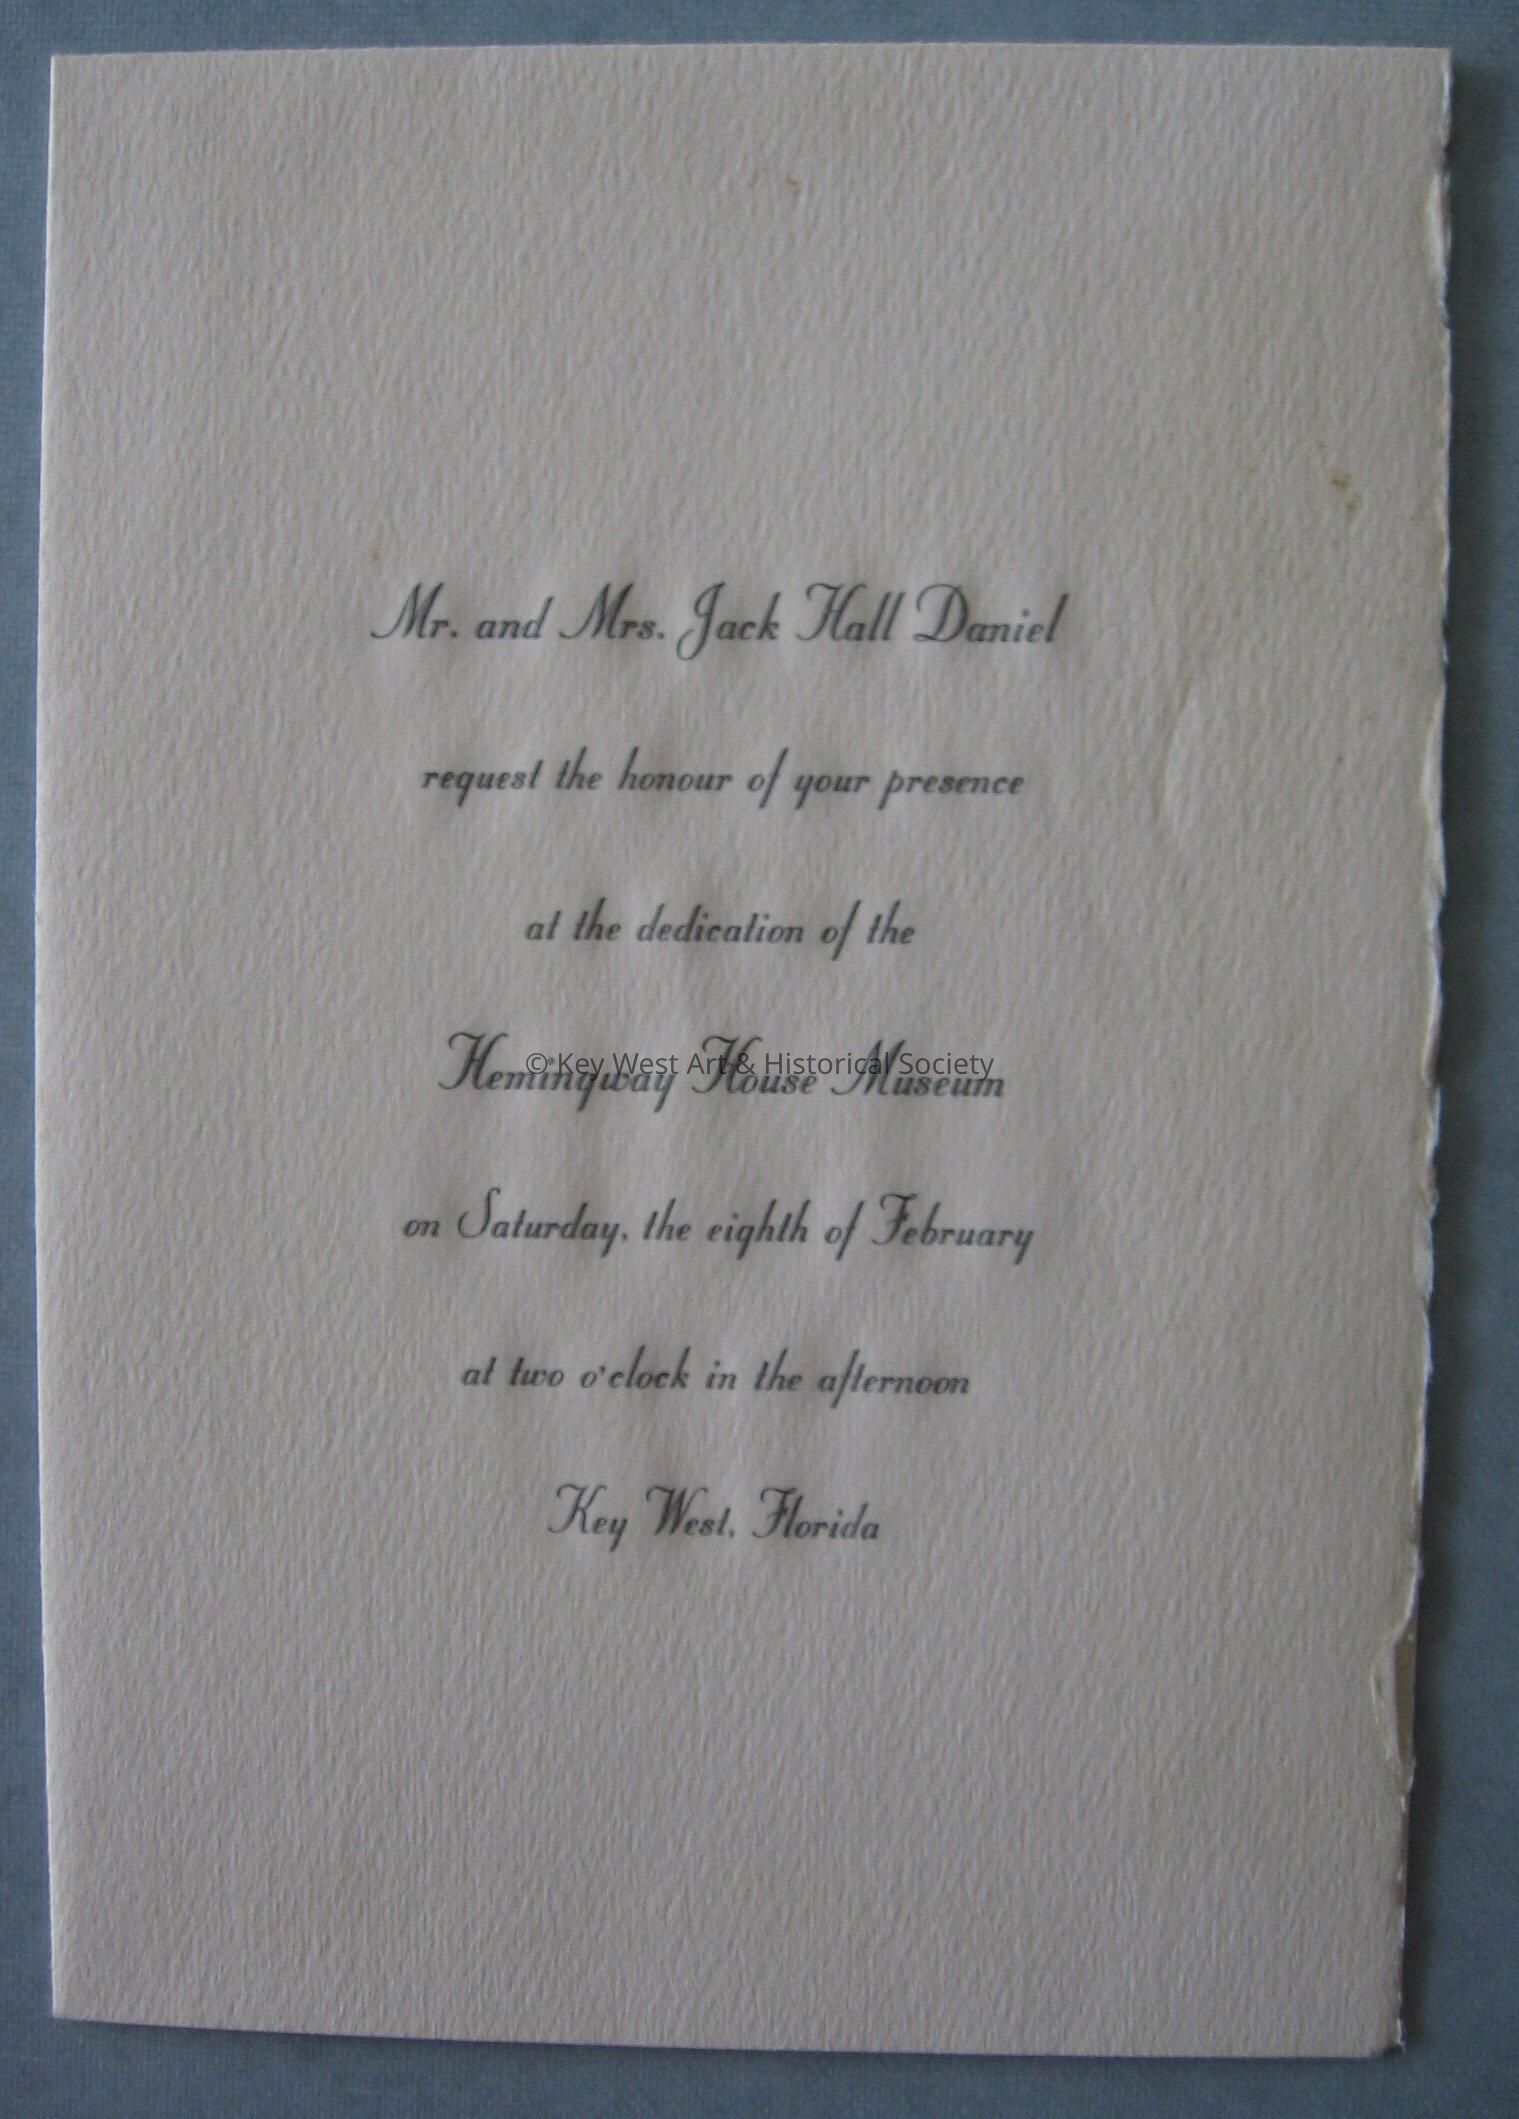 Mr. and Mrs. Jack Hall Daniel
request the honour of your presence
at the dedication of the
Hemingway House Museum
© Key West Art & Historical Society
on Saturday, the eighth of February
at two o'clock in the afternoon
Key West, Florida